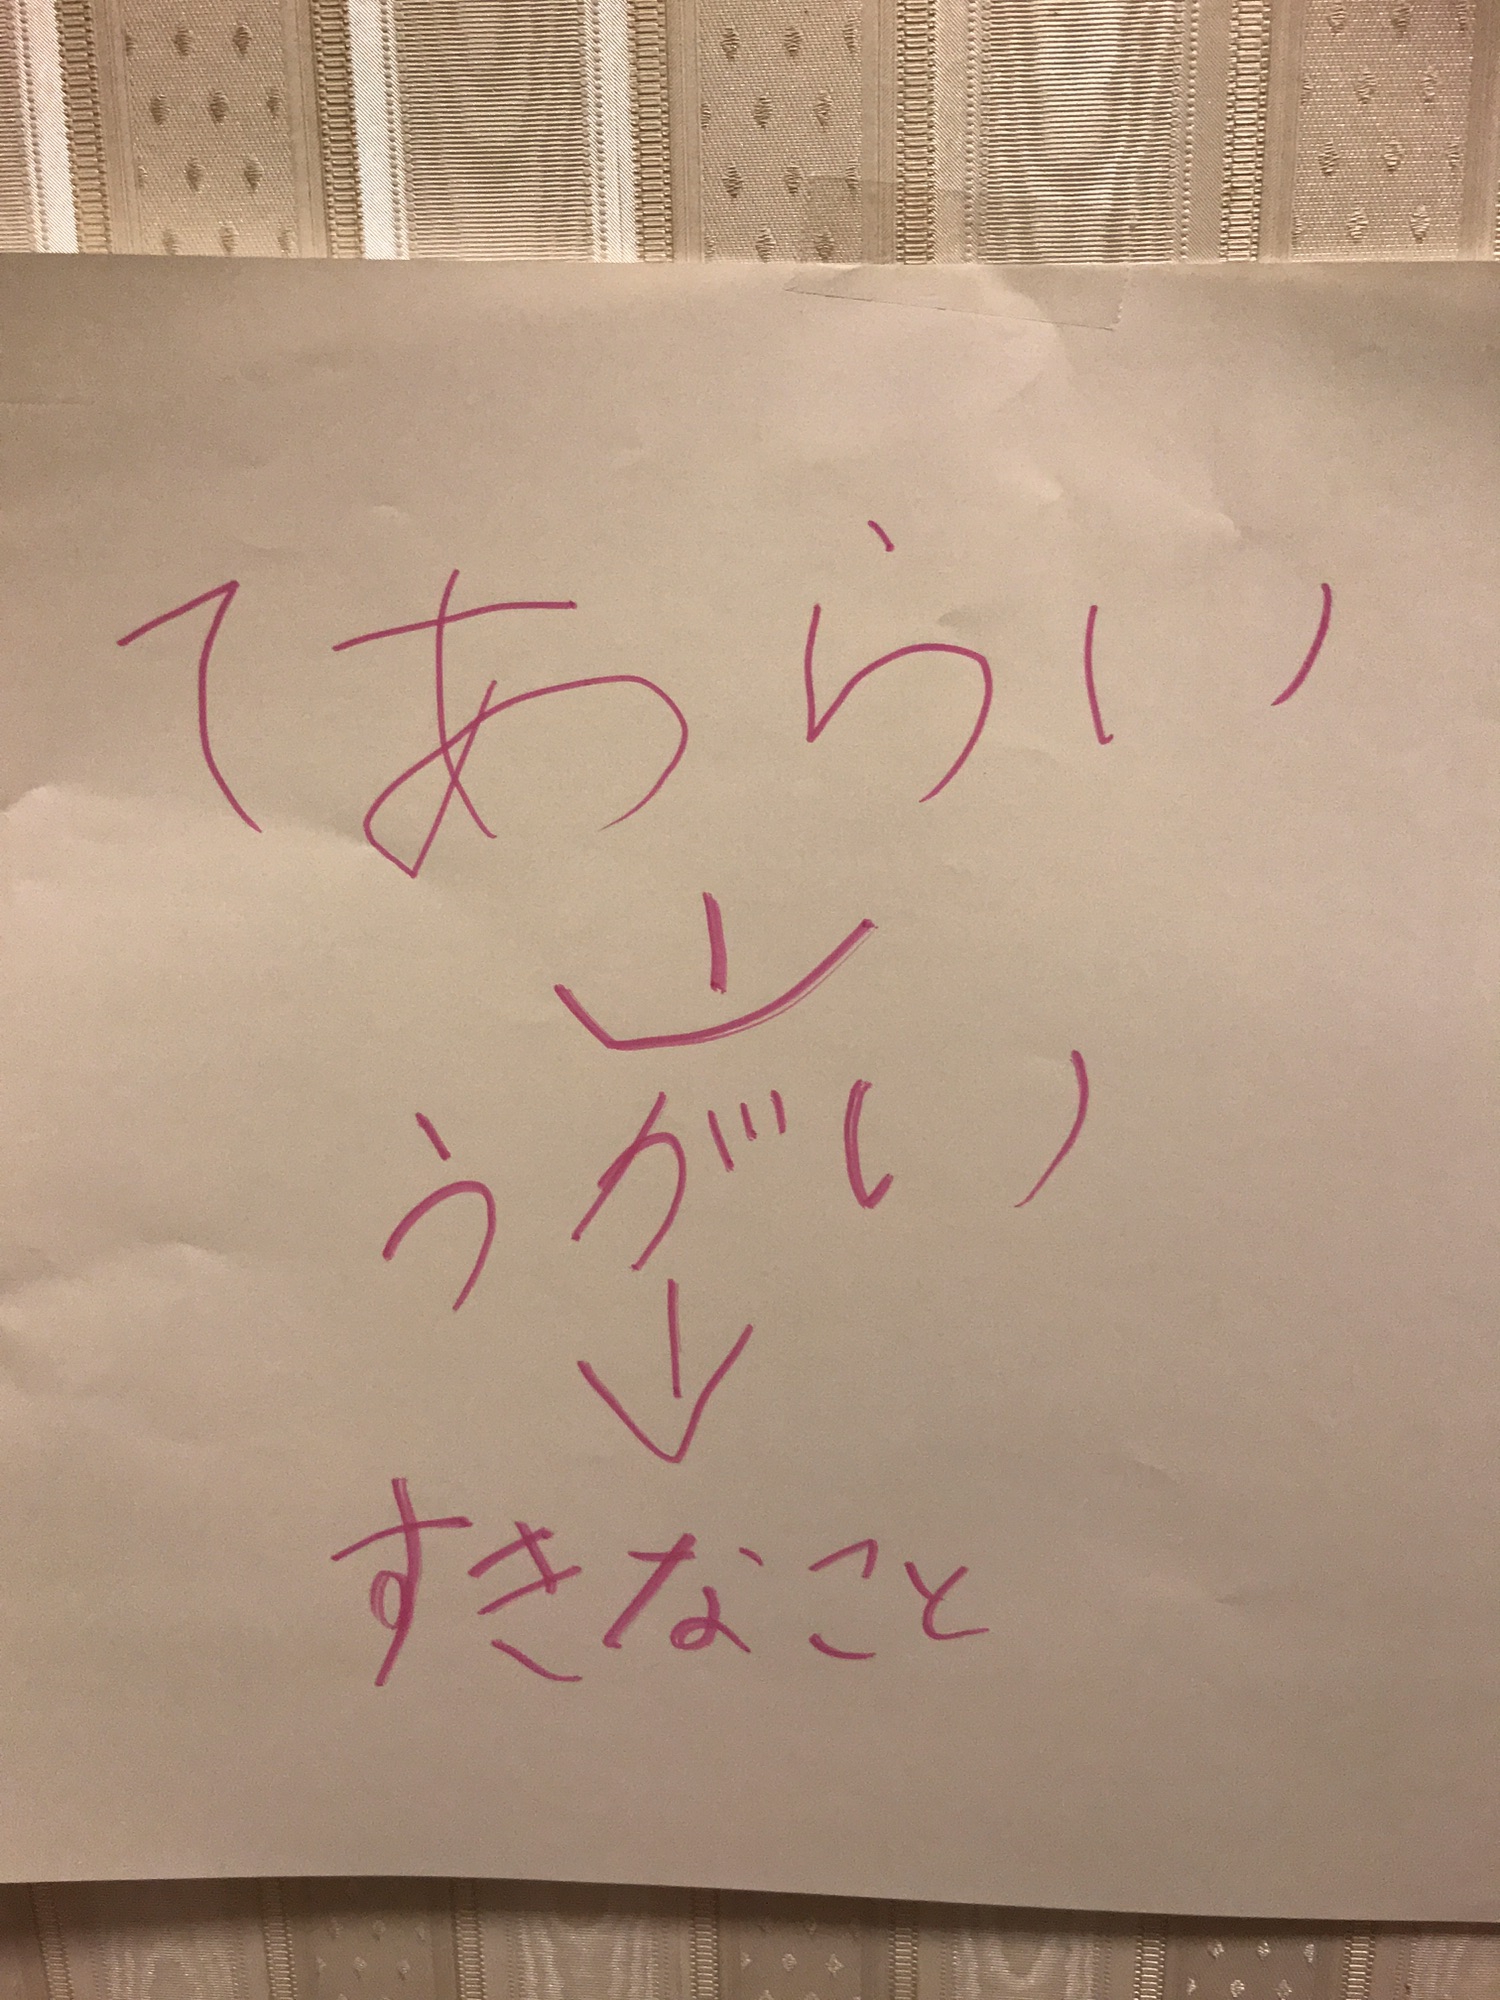 てあらい
↓
うがい
↓
すきなこと